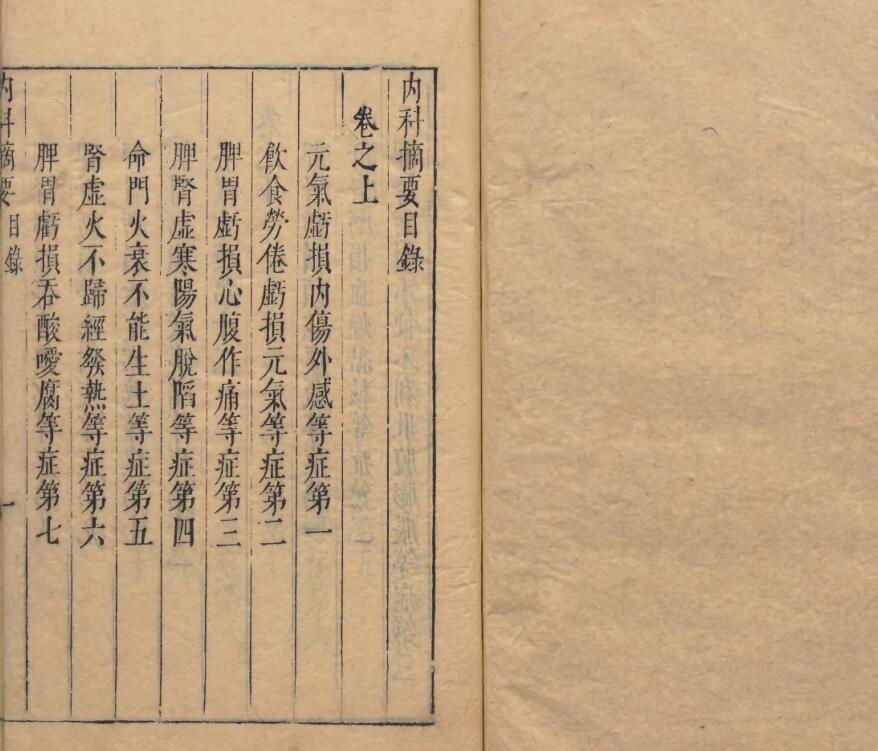 內科摘要目錄
卷之上
元氣虧損內傷外感等症第一
飲食勞倦虧損元氣等症第二
脾胃虧損心腹作痛等症第三
脾腎虛寒陽氣脫陷等症第四
命門火衰不能生土等症第五
腎虛火不歸經發熱等症第六
脾胃虧損吞酸噯腐等症第七
內科摘要 目錄 一